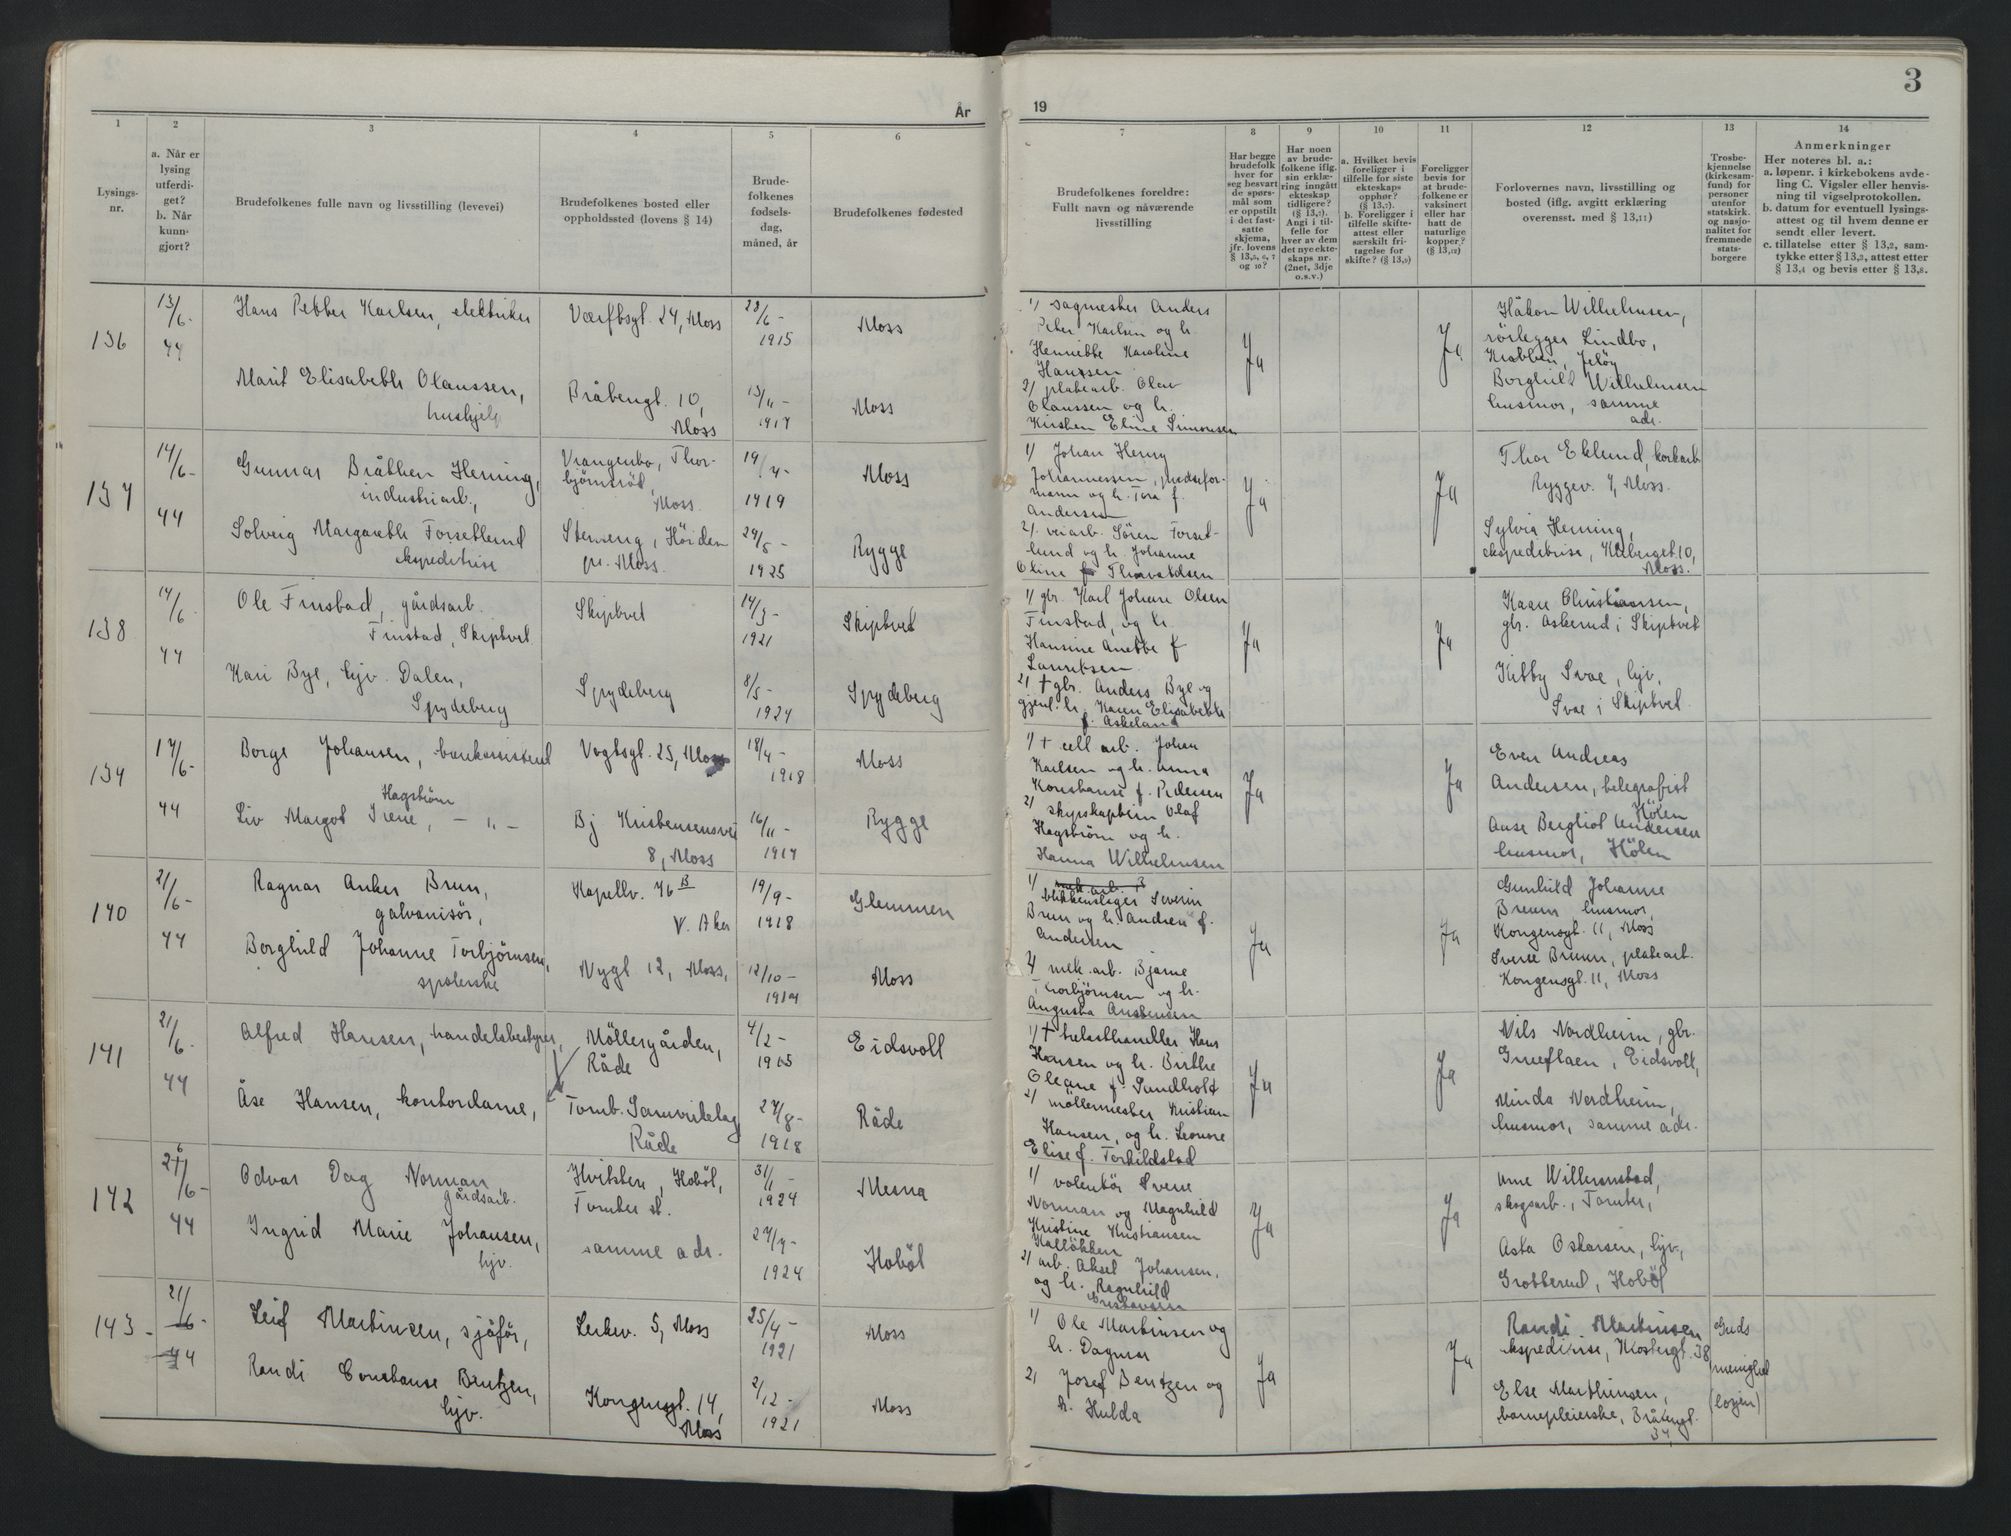 3
År
19
1
2
3
4
5
6
7
8
9
10
11
12
13
14
Lysings-
nr.
a. Når er
lysing
utferdi-
get?
b. Når
kunn-
gjort?
Brudefolkenes fulle navn og livsstilling (levevei)
Brudefolkenes bosted eller
oppholdssted (lovens § 14)
Brude-
folkenes
fødsels-
dag,
måned, år
Brudefolkenes fødested
Brudefolkenes foreldre:
Fullt navn og nåværende
livsstilling
Har begge
brudefolk
hver for
seg besvart
de spørs-
mål som
er oppstilt
i det fast-
satte
skjema,
jfr. lovens
§ 13,5, 6, 7
og 10?
Har noen
av brude-
folkene iflg.
sin erklæ-
ring inngått
ekteskap
tidligere?
(§ 13,7).
Angi i til-
felle for
hver av dem
det nye ekte-
skaps nr.
(2net, 3dje
o.s.v.)
a. Hvilket bevis
foreligger i
tilfelle for siste
ekteskaps
opphør?
(§ 13,7).
b. Foreligger i
tilfelle skifte-
attest eller
særskilt fri-
tagelse for
skifte? (§ 13,9)
Foreligger
bevis for
at brude-
folkene er
vaksinert
eller har
hatt de
naturlige
kopper?
(§ 13,12)
Forlovernes navn, livsstilling og
bosted (iflg. avgitt erklæring
overensst. med § 13,11)
Trosbe-
kjennelse
(kirkesam-
fund) for
personer
utenfor
statskirk.
og nasjo-
nalitet for
fremmede
stats-
borgere
Anmerkninger
Her noteres bl. a.:
a. løpenr. i kirkebokens avde-
ling C. Vigsler eller henvis-
ning til vigselprotokollen.
b. datum for eventuell lysings-
attest og til hvem denne er
sendt eller levert.
c. tillatelse etter § 13,2, sam-
tykke etter § 13,3, attest etter
§ 13,4 og bevis etter § 13,8.
136
13/6-
44
Hans Petter Karlsen, elektriker
Værftsgt. 24, Moss
28/6-
1915
Moss
Marit Elisabeth Olaussen,
hushjelp
Bråtengt. 10,
Moss
13/11-
1917
Moss
1/ sagmester Anders
Peter Karlsen og h.
Henriette Karoline
Hanssen
2/ platearb. Olav
Olaussen og h.
Kirsten Eline Simonsen
Ja
Ja
Håkon Wilhelmsen,
rörlegger Lindbo,
Krabben, Jelöy
Borghild Wilhelmsen
husmor, samme
adr.
137
14/6-
44
Gunnar Bråthen Herning,
industriarb.,
Vrangenbo, Thor-
björnsröd,
Moss.
1919
Moss
Solveig Margareth Forsetlund
ekspeditrise
Stenseng, Höiden
pr. Moss.
29/5-
1925
Rygge
1/ Johan Henry
Johannessen, pudsefor-
mann og h. Tora f.
Andersen
2/ veiarb. Sören Forset-
lund og h. Johanne
Oline f Thorvaldsen
Ja
Ja
Thor Eklund, korkarb
Ryggev. 7, Moss.
Sylvia Herning,
ekspeditrise, Kirkegt. 10,
Moss.
138
14/6-
44
Ole Finstad, gårdsarb.
Finstad, Skiptvet
Skiptvet
14/3-
1921
Skiptvet
Kari Bye, hjv. Dalen,
Spydeberg
Spydeberg
8/5-
1924
Spydeberg
1/ gbr. Karl Johan Olsen
Finstad, og h.
Hansine Anette f
Lauritsen.
2/ † gbr. Anders Bye og
gjenl. h. Karen Elisabeth
f. Askeland
Ja
Ja
Kaare Christiansen,
gbr. Askerud i Skiptvet
Kitty Svae, hjv,
Svae i Skiptvet
139
17/6-
44
Borge Johansen, bankassistent
Vogtsgt. 25, Moss
18/4-
1918
Moss
Hagström
Liv Margot Irene, - „ -
Bj Kristensensvei
8, Moss
16/11-
1917
Rygge
1/ † cell arb. Johan
Karlsen og h. Anna
Konstanse f. Pedersen
2/ skipskaptein Olaf
Hagström og h.
Hanna Wilhelmsen
Ja
Ja
Even Andreas
Andersen, telegrafist
Hölen
Anse Bergliot Andersen
husmor, Hölen
140
21/6-
44
Ragnar Anker Brun,
galvanisör,
Kapellv. 76 B
V. Aker
19/9-
1918
Glemmen
Borghild Johanne Torbjörnsen,
spolerske
Nygt 12, Moss,
12/10-
1919
Moss
1/ mek. arb. B
blikkenslager Severin
Brun og h. Andrea f.
Andersen
2/ mek. arb. Bjarne
Thorbjörnsen og h.
Augusta Arntsensen
Ja
Ja
Gunhild Johanne
Bruun, husmor,
Kongensgt. 11, Moss
Sverre Bruun, platearb.
Kongensgt. 11, Moss
141
21/6-
44
Alfred Hansen, handelsbestyrer,
Möllergården,
Råde
4/2-
1905
Eidsvoll
Åse Hansen, kontordame,
Tomb. Samvirkelag
Råde
27/8-
1918
Råde
1/ † trelasthandler Hans
Hansen og h. Birthe
Oleane f. Sundholt
2/ möllermester Kristian
Hansen, og h. Leonore
Elise f. Torkildstad
Ja
Ja
Nils Nordheim, gbr.
Eidsvoll,
Minda Nordheim,
husmor, samme adr.
142
21/6-
44
Odvar Dag Norman,
gårdsarb.
Hvitsten, Hoböl,
Tomter st.
31/1-
1924
Mesna
Ingrid Marie Johansen,
hjv.
samme adr.
1924
Hoböl
1/ volontör Sverre
Norman og Magnhild
Kristine Kristiansen
Kallökken
2/ arb. Aksel Johansen,
og h. Ragnhild
Gustavsen
Ja
Ja
Arne Willersrud,
skogsarb., Tomter,
Asta Oskarsen, hjv.,
Grotterud, Hoböl
143-
21/6-
44
Leif Martinsen, sjåför,
Lerkev. 5, Moss
25/4-
1921
Moss
Randi Constanse Bentzen,
hjv.
Kongensgt. 14,
Moss
2/12-
1921
Moss
1/ Ole Martinsen og
h. Dagmar
2/ Josef Bentzen og
h. Hulda
Ja
Ja
Randi Martinsen
ekspeditrise, Klostergt. 38
Else Marthinsen,
barnepleierske, Bråtengt.
34,
Guds
menighet